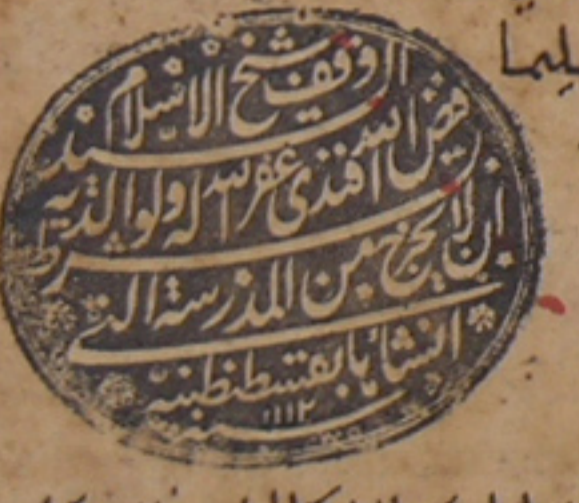 ليما
وقف شيخ الاسلام السيد
فيض الله افندى غفر الله له ولوالديه
بشرط ان لا يخرج من المدرسة التى
انشأها بقسطنطنية
سنة ١١١٢